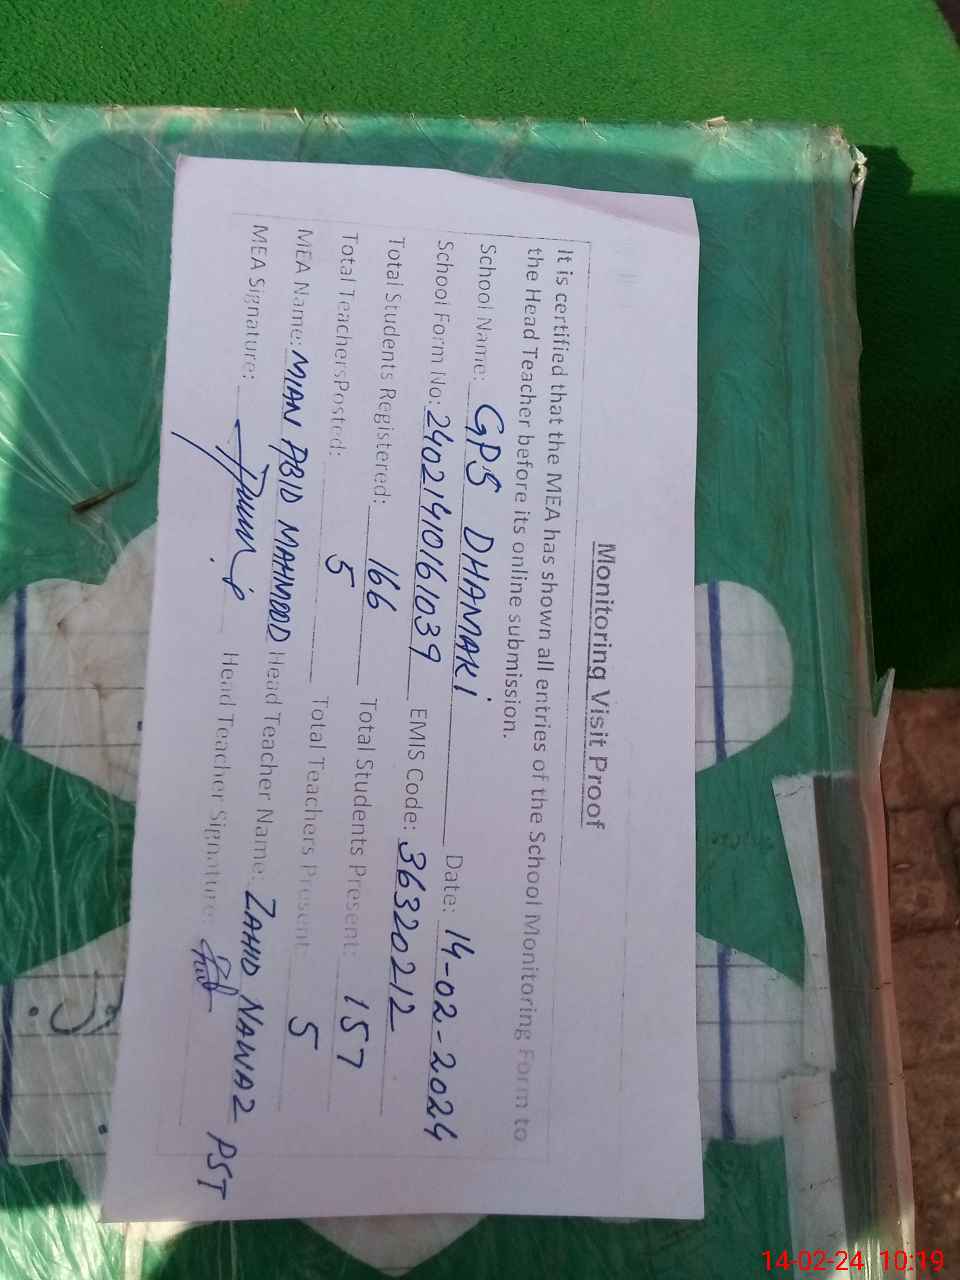 Monitoring Visit Proof
It is certified that the MEA has shown all entries of the School Monitoring Form to
the Head Teacher before its online submission.
School Name: GPS DHAMAKI Date: 14-02-2024
School Form No: 24021410161039 EMIS Code: 36320212
Total Students Registered: 166 Total Students Present: 157
Total TeachersPosted: 5 Total Teachers Present: 5
MEA Name: MIAN ABID MAHMOOD Head Teacher Name: ZAHID NAWAZ PST
MEA Signature: Head Teacher Signature:
14-02-24 10:19